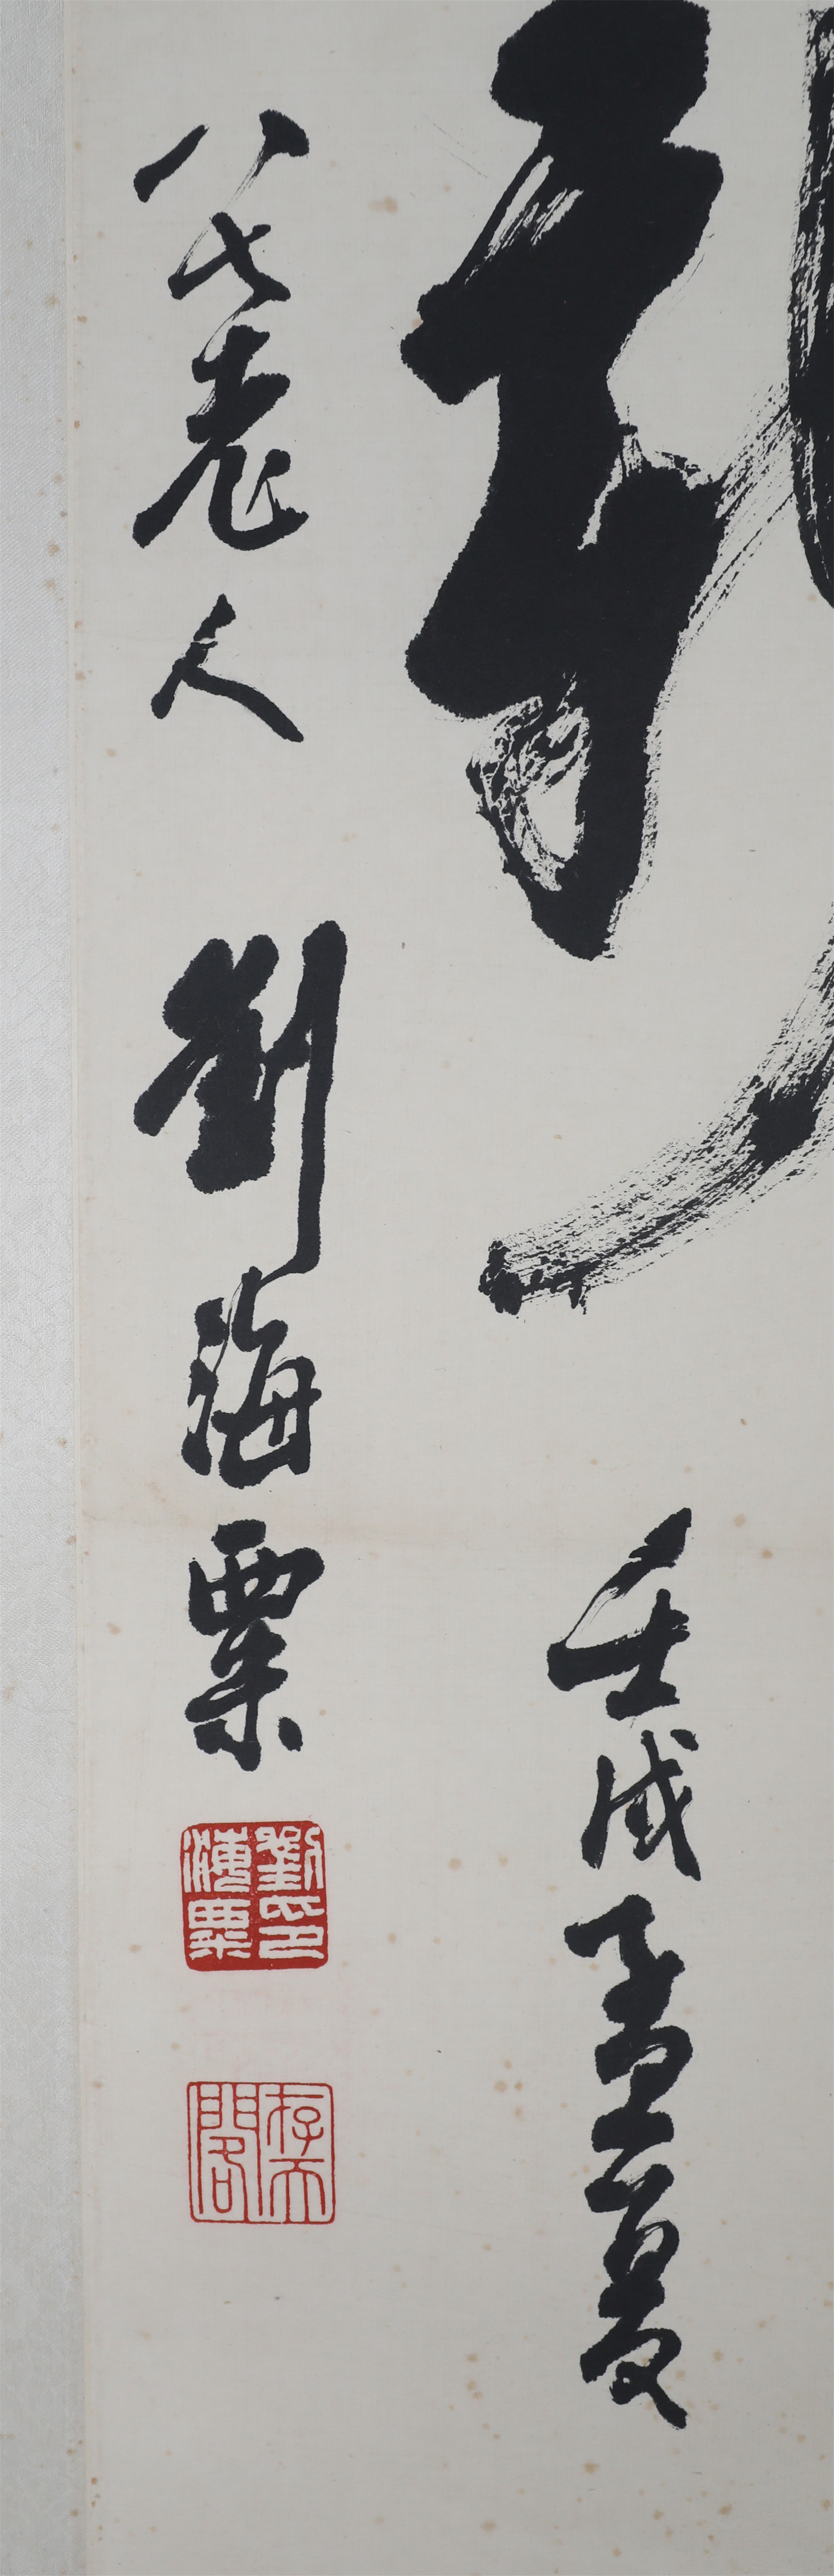 壬戌孟夏
八七老人 劉海粟
劉海粟印
存天閣